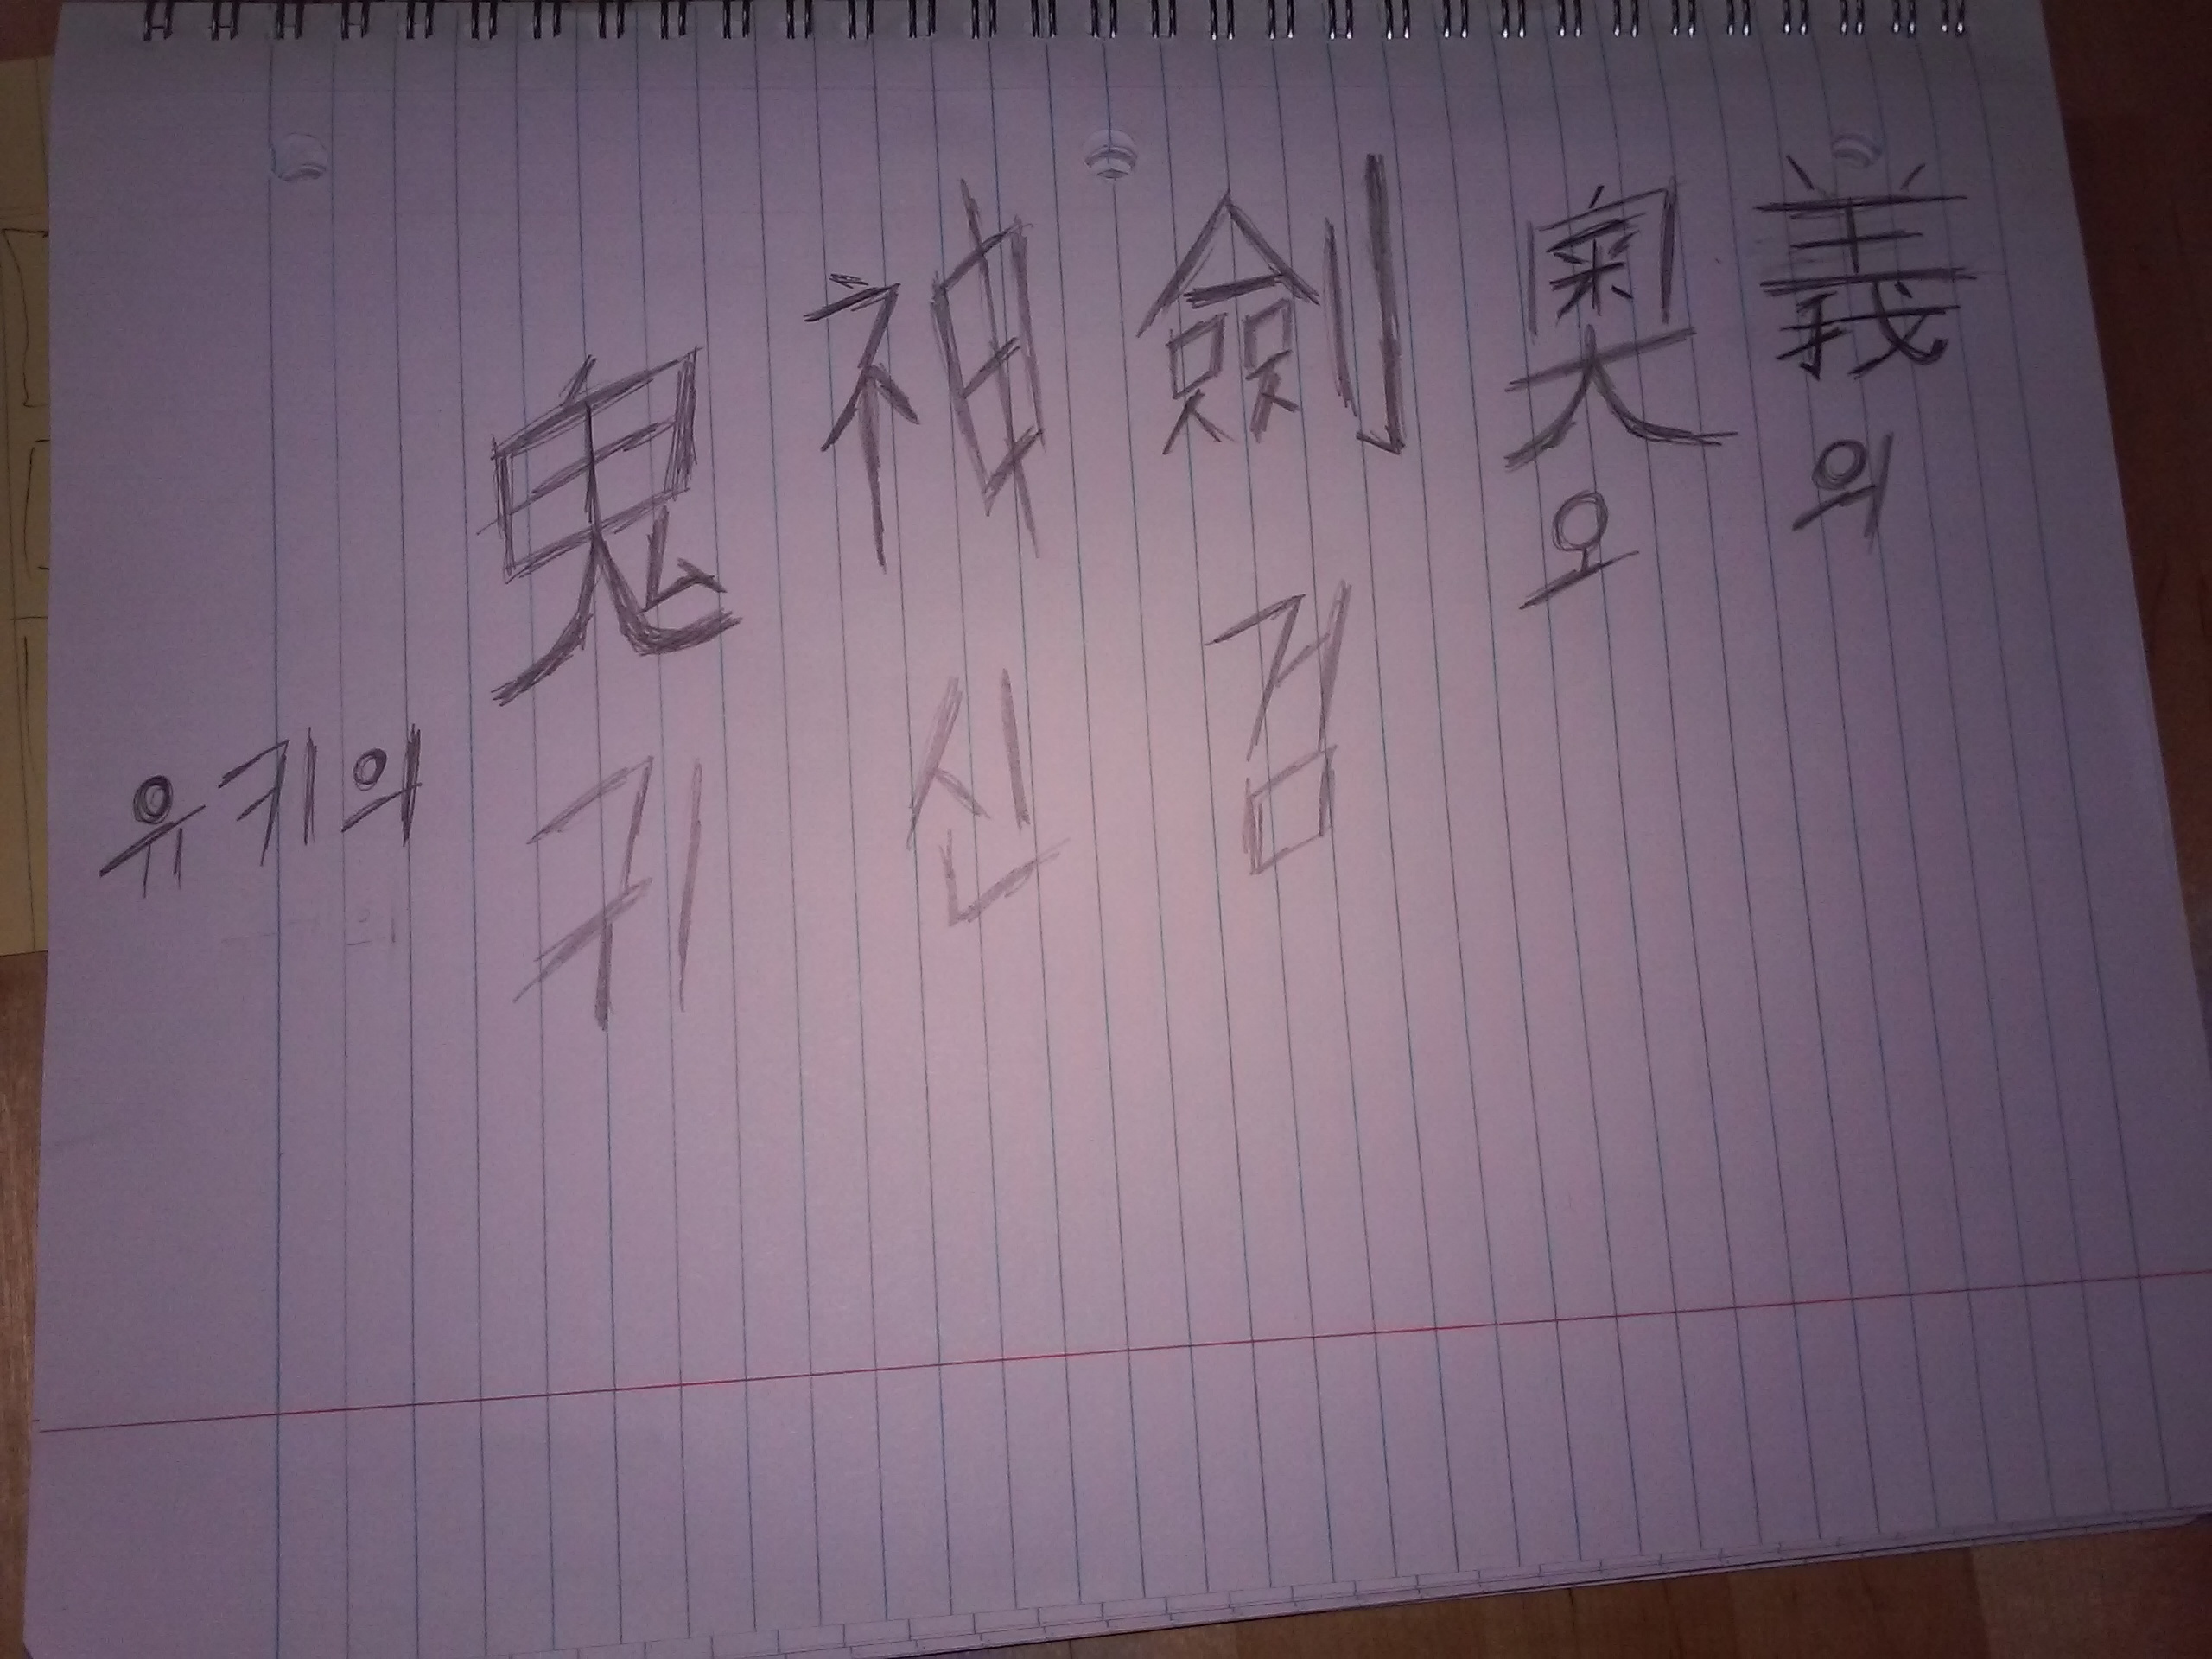 鬼神劍奧義
유키의 귀신검오의